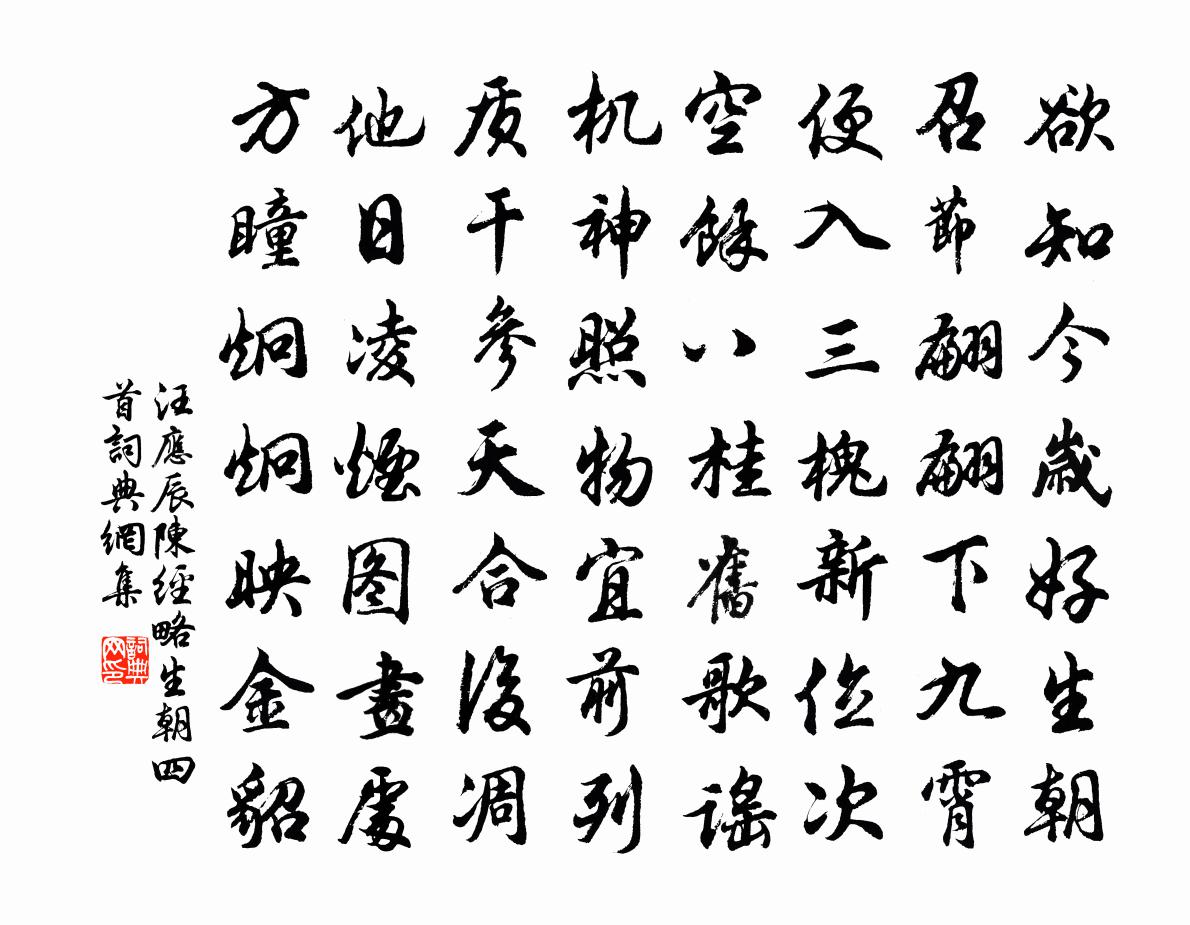 欲知今歳好生朝
召節翩翩下九霄
便入三槐新位次
空餘八桂舊歌謠
机神照物宜前列
质干參天合後凋
他日凌煙图畫處
方瞳炯炯映金貂
汪應辰陳經略生朝四
首詞典網集
詞典网印